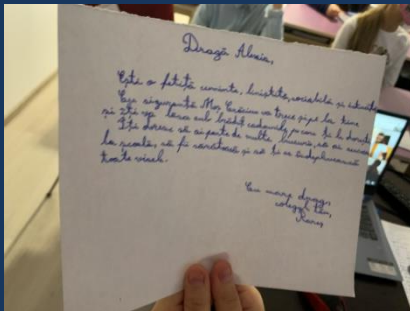 Dragă Alexia,
Ești o fetiță cuminte, liniștită, sociabilă și
Cu siguranță Moș Crăciun va trece și pe la tine
și îți va lăsa sub brăduț cadourile pe care ți le dorești.
Îți doresc să ai parte de multă bucurie, să ai
la școală, să fii sănătoasă și să ți se îndeplinească
toate visele!
Cu mare drag,
colegul tău,
Rareș